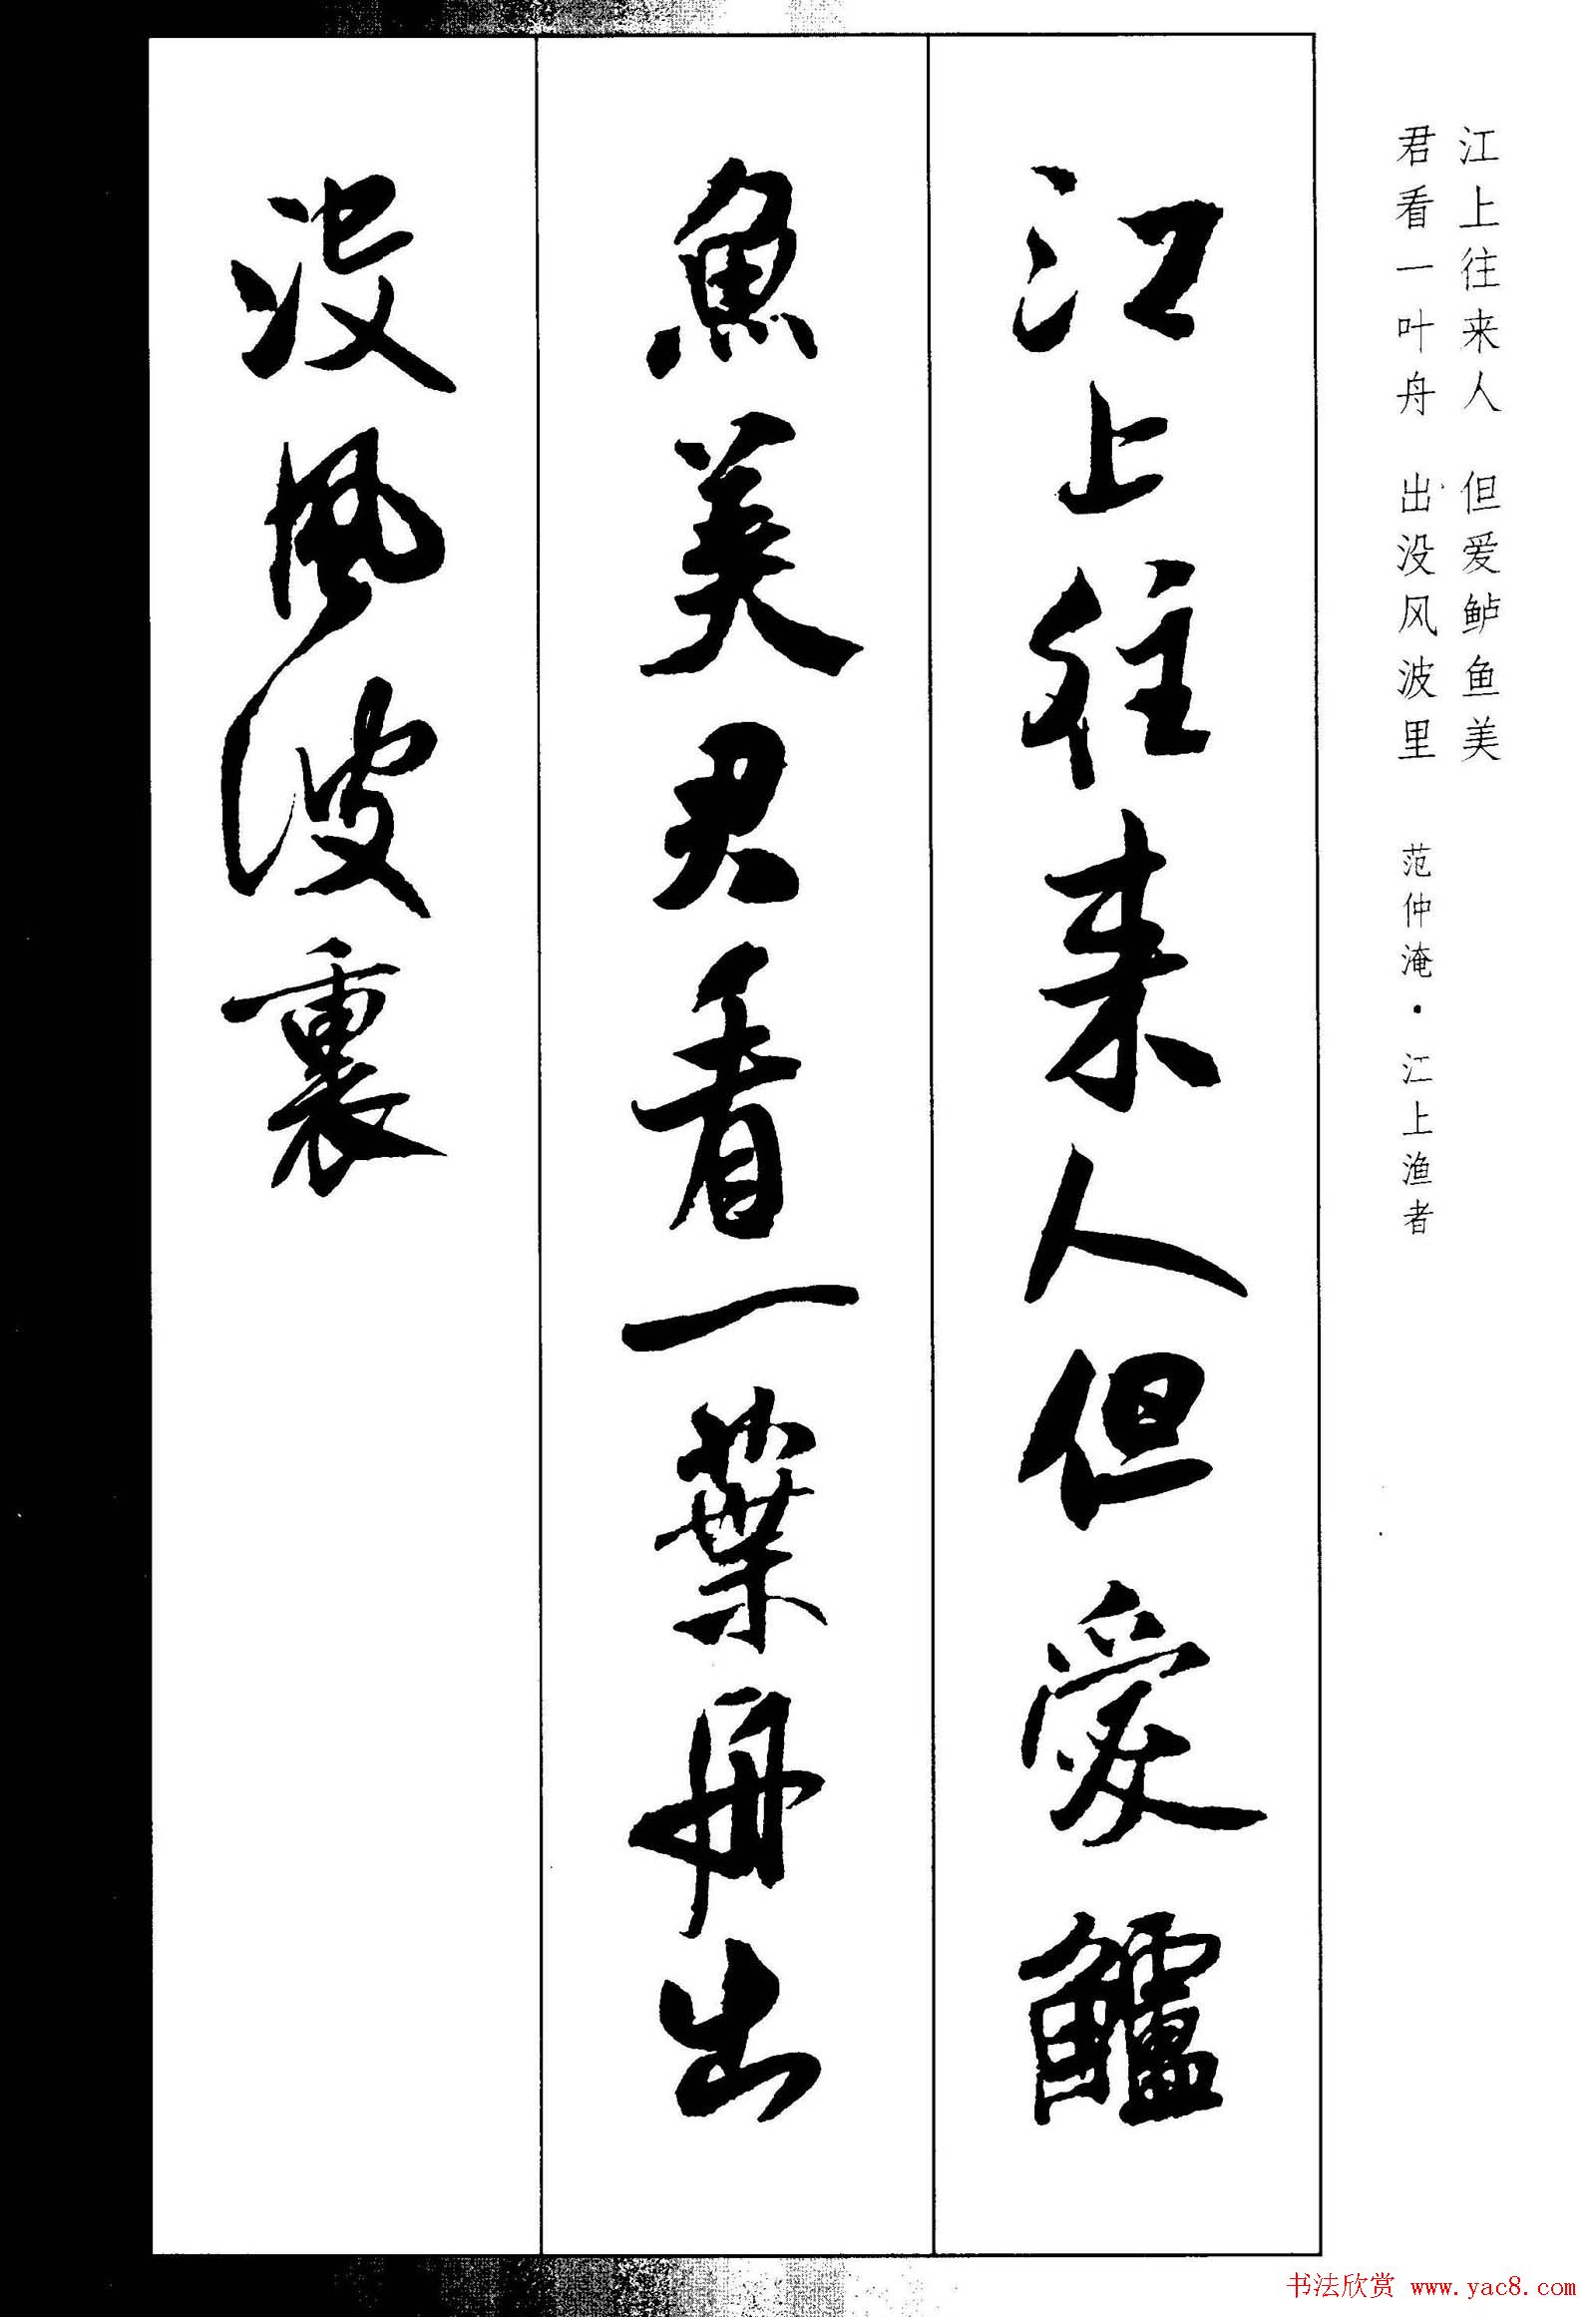 江上往来人 但爱鲈鱼美
君看一叶舟 出没风波里 范仲淹·江上渔者
江上往来人但愛鱸
魚美君看一葉舟出
没風波裏
书法欣赏 www.yac8.com